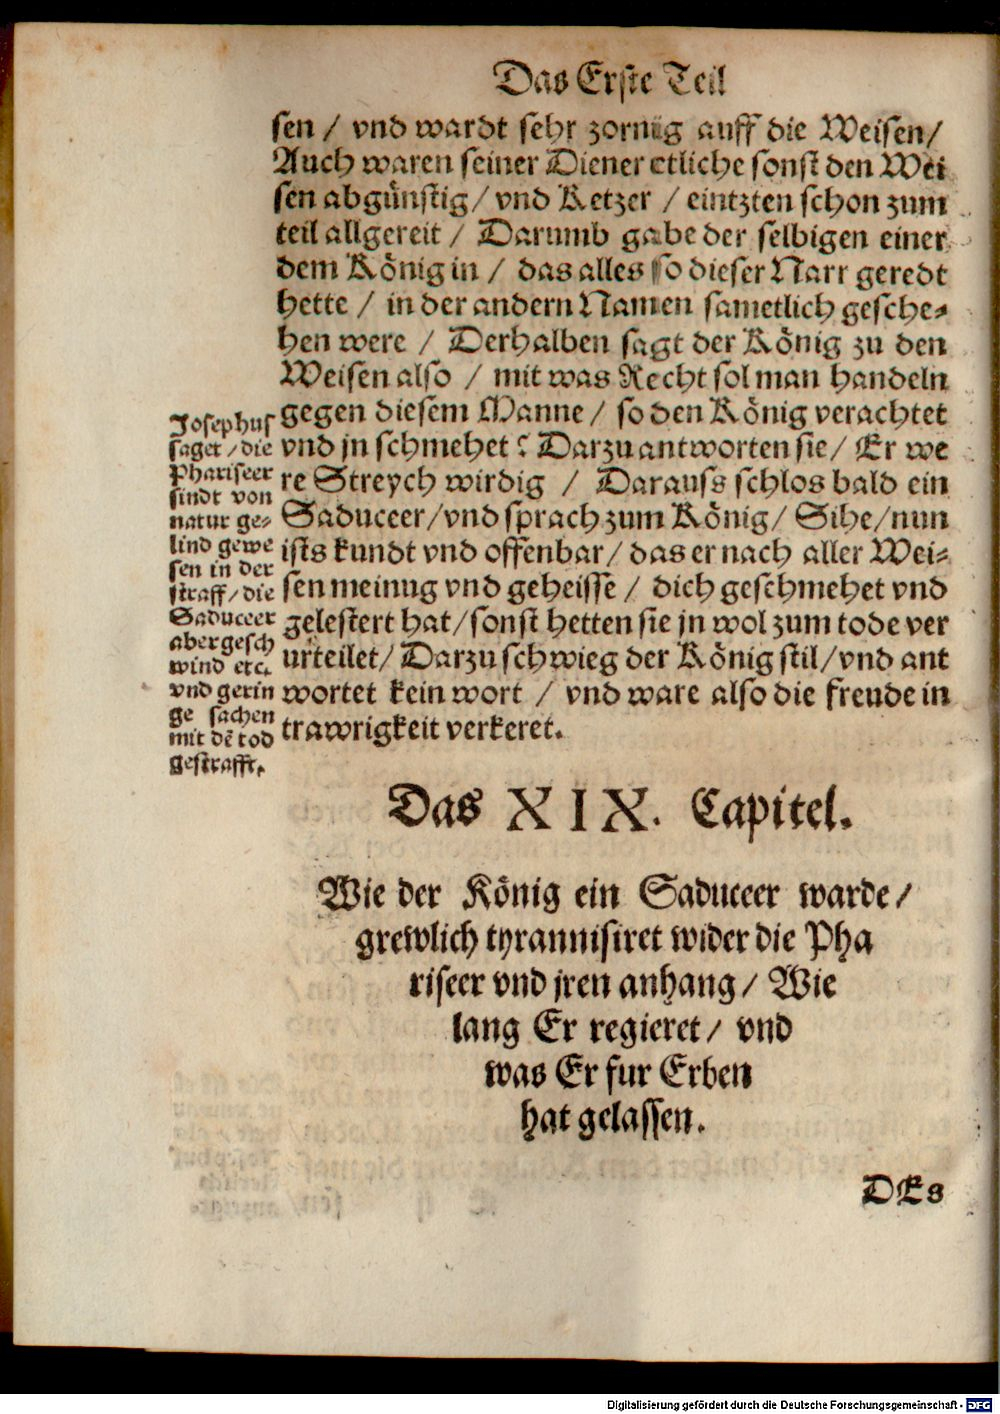 Das Erste Teil
sen / vnd wardt sehr zornig auff die Weisen/
Auch waren seiner Diener etliche sonst den Wei
sen abgünstig/ vnd Ketzer / eintzten schon zum
teil allgereit / Darumb gabe der selbigen einer
dem König in / das alles so dieser Narr geredt
hette / in der andern Namen sametlich gesche-
hen were / Derhalben sagt der König zu den
Weisen also / mit was Recht sol man handeln
gegen diesem Manne / so den König verachtet
vnd jn schmehet? Darzu antworten sie/ Er we
re Streych wirdig / Darauss schlos bald ein
Saduceer/vnd sprach zum König/ Sihe/nun
ists kundt vnd offenbar/ das er nach aller Wei-
sen meinug vnd geheisse / dich geschmehet vnd
gelestert hat/sonst hetten sie jn wol zum tode ver
urteilet/ Darzu schwieg der König stil/vnd ant
wortet kein wort / vnd ware also die freude in
trawrigkeit verkeret.
Josephus
saget/die
Phariseer
sindt von
natur ge-
lind gewe
sen in der
straff/die
Saduceer
aber gesch
wind etc.
vnd gerin
ge sachen
mit dē tod
gestrafft.
Das XIX. Capitel.
Wie der König ein Saduceer warde/
grewlich tyrannisiret wider die Pha
riseer vnd jren anhang/ Wie
lang Er regieret/ vnd
was Er fur Erben
hat gelassen.
DEs
Digitalisierung gefördert durch die Deutsche Forschungsgemeinschaft - DFG